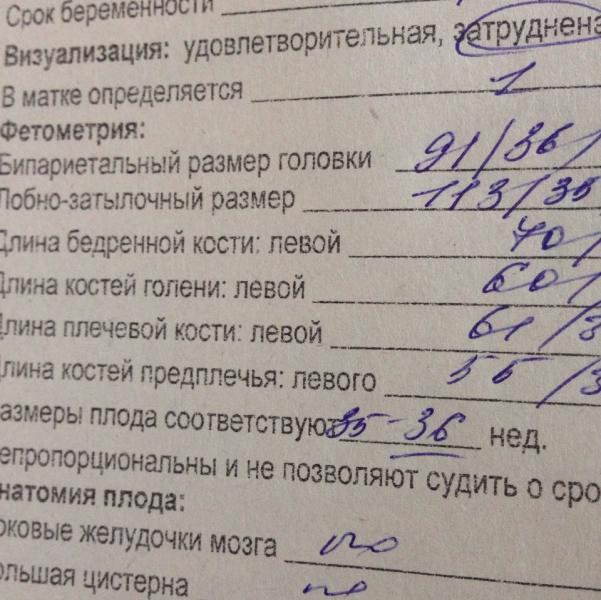 Срок беременности
Визуализация: удовлетворительная, затруднена
В матке определяется 1
Фетометрия:
Бипариетальный размер головки 91/36/
Лобно-затылочный размер 113/35
Длина бедренной кости: левой 70/
Длина костей голени: левой 60/
Длина плечевой кости: левой 61/3
Длина костей предплечья: левого 55/3
азмеры плода соответствуют 35-36 нед.
епропорциональны и не позволяют судить о сро
натомия плода:
оковые желудочки мозга no
ольшая цистерна no